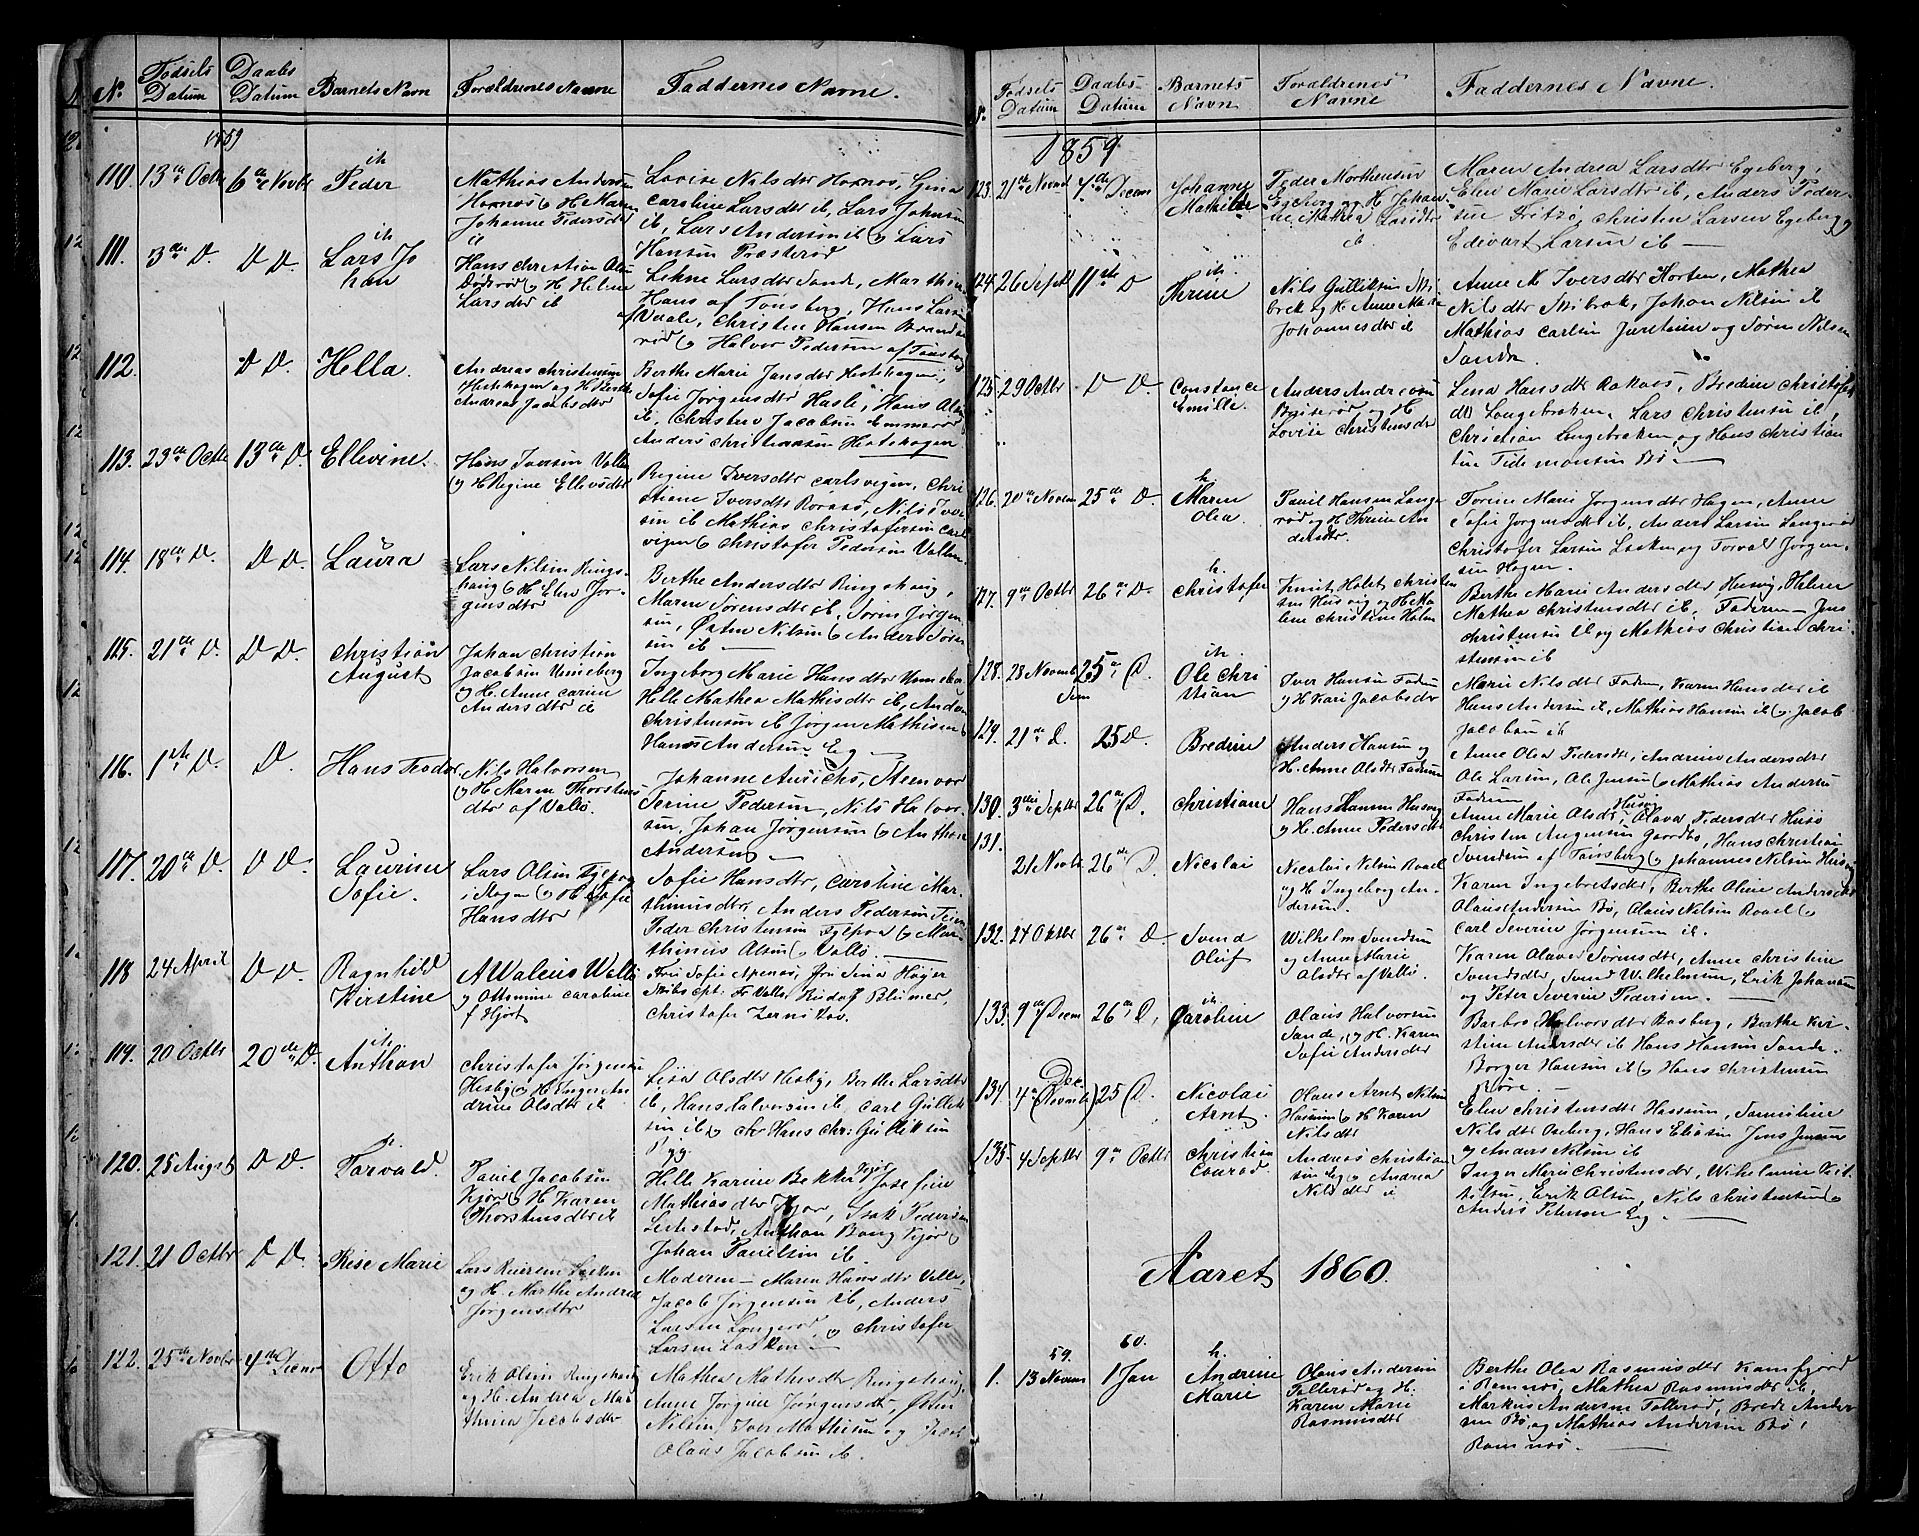 No. Fødsels Datum Daabs Datum Barnets Navn Forældrenes Navne Faddernes Navne.
1859
110. 13de Octbr 6te Novbr Peder
Mathias Andersen
Hornæs og H. Maren
Johanne Pedersdtr
ib
Lovise Nilsdtr Hornæs, Gina
Caroline Larsdtr ib, Lars Johnsen
ib, Lars Andersen ib og Lars
Hansen Præsterød
111. 3die D. D D. Lars Jo
han
Hans Christian Olsen
og H. Helene
Larsdtr ib
Lehne Larsdtr Sande, Marthin
Hans af Tønsberg, Hans Larsen
af Vaale, Christen Hansen
rød og Halvor Pedersen af Tønsberg
112. D D. Hella.
Andreas Christensen
Hestehagen og H.
Andrea Jacobsdtr
Berthe Marie Jansdtr Hestehagen,
Sofie Jørgensdtr Hasle, Hans Olsen
ib, Christen Jacobsen
Anders Christiansen Hestehagen
113. 23de Octbr 13de D. Ellevine.
Hans Iversen Valle
og H Regine Ellevsdtr
Regine Iversdtr Carlsvigen, Chri
stiane Iversdtr Roraas, Nils Iver
sen ib Mathias Christofersen Carls
vigen og Christofer Pedersen Vallø
114. 18de D. D D. Laura
Lars Nilsen Rings
haug og H. Elen Jør
gensdtr
Berthe Andersdtr Ringshaug,
Maren Sørensdtr ib, Søren Jørgen
sen, Østen Nilsen og Anders Søren
sen ib
115. 21de D. D D. Christian
August
Johan Christian
Jacobsen Unneberg
og H. Anne Carine
Andersdtr ib
Ingeborg Marie Hansdtr Unneberg
Helle Mathea Mathisdtr ib, Anders
Christensen ib Jørgen Mathisen og
Hans Andersen Eg
116. 1ste D. D. Hans Teodor
Nils Halvorsen
og H. Maren Thorstens
dtr af Vallø.
Johanne Aurichs,
Terine Pedersen, Nils Halvor
sen, Johan Jørgensen og Anthon
Andersen
117. 20de D. D D. Laurine
Sofie.
Lars Olsen Fyepo
i Slagen og H. Sofie
Hansdtr
Sofie Hansdtr, Caroline Mar
thinusdtr, Anders Pedersen
Peder Christensen Fyepoa og Mar
thinius Olsen Vallø.
118 24 April D D. Ragnhild
Kirstine
A Waleus Vallø
og Ottomine Caroline
f Hjort
Fru Sofie Apenæs, Fru Sina Højer
Skibscpt: Fr Valls, Rudolf Blumer,
Christofer Zernikov.
119. 20 Octbr 20de D. Anthon
Christofer Jørgensen
Hesby og H. Inger An
drine Olsdtr ib
Lisa Olsdtr Hesby, Berthe Larsdtr
ib, Hans Halvorsen ib, Carl Gullik
sen ib og Hans Chr: Gulliksen
120. 25 August D D. Torvald
Pauel Jacobsen
Kjær og H Karen
Thorstensdtr ib
Helle Karine Bekker Josefine
Mathiasdtr Kjær, Isak Pedersen
Leilestad, Anthon Bang Kjær og
Johan Pauelsen ib
121. 21 Octbr D D. Rise Marie
Lars Larsen
og H. Marthe Andrea
Jørgensdtr
Moderen – Maren Hansdtr Valle,
Jacob Jørgensen ib, Anders
Larsen Langerød, og Christofer
Larsen Lasken.
122. 25de Novbr 4de Decmr Otto
Erik Olsen Ringshaug
og H. Andrea Ma
thea Jacobsdtr
Mathea Mathisdtr Ringshaug,
Anne Jørgine Jørgensdtr, Østen
Nilsen, Iver Mathisen og
Olaus Jacobsen ib.
No. Fødsels Datum Daabs Datum Barnets Navn Forældrenes Navne Faddernes Navne.
1859
123. 21de Novmb 4de Decem Johanne
Mathilde
Peder Morthensen
Egeberg og H Johan
ne Mathea Larsdtr
ib
Maren Andrea Larsdtr Egeberg,
Elen Marie Larsdtr ib, Anders Peder
sen Fritzø, Christen Larsen Egeberg og
Edevart Larsen ib
124. 26 Septbr 11te D Thrine
Nils Gulliksen Ski
brek og H. Anne Marie
Johannesdtr ib
Anne M. Iversdtr Horten, Mathea
Nilsdtr Skibrek, Johan Nilsen ib
Mathias Carlsen og Søren Nilsen
Sande
125. 29 Octbr D D. Constance
Emilie.
Anders Andreasen
og H.
Lovise Christensdtr
Lena Hansdtr Rakaas, Bredine Christofers
dtr Langebraken, Lars Christensen ib,
Christian Langebraken og Hans Christian
sen Tidemansen Bø
126. 20de Novem 25de D. Maren
Olea.
Pauel Hansen Lange
rød og H. Thrine An
dersdtr.
Torine Marie Jørgensdtr Hagen, Anne
Sofie Jørgensdtr ib, Anders Larsen Langerød
Christofer Larsen Lasken og Torval Jørgen
sen Hagen.
127. 9de Octbr 26de D. Christofer
Knut Holst Christen
sen Husvig og H. Ma
lene Christine Holm
Berthe Marie Andersdtr Husvig, Helene
Mathea Christensdtr ib. Faderen – Jens
Christensen ib og Mathias Christian Chri
stensen ib
128. 28 Novmb 25de D. Ole Chri
stian
Iver Hansen Fadum
og H Kari Jacobsdtr
Marie Nilsdtr Fadum, Karen Hansdtr ib
Hans Andersen ib, Mathias Hansen ib og Jacob
Jacobsen ib
129. 21de D. 25 D. Bredine
Anders Hansen og
H. Anne Olsdtr Fadum
Anne Olea Pedersdtr, Andrine Andersdtr
Ole Larsen, Ole Jensen og Mathias Andersen
Fadum
130. 3die Septbr 26de D. Christiane
Hans Hansen Husvig
og H. Anne Pedersdtr
Anne Marie Olsdtr Husvig, Olava Pedersdtr Husø
Christen Augensen Gaardbo, Hans Christian
Svendsen af Tønsberg og Johannes Nilsen Husvig
131. 21 Novbr 26de D. Nicolai
Nicolai Nilsen Rael
og H. Ingeborg An
dersen.
Karen Ingebretsdtr, Berthe Oline Andersdtr
Olaus Andersen Bø, Olaus Nilsen Rael og
Carl Severin Jørgensen ib.
132. 24 Oktbr 26de D. Svend
Oluf
Wilhelm Svendsen
og Anne Marie
Olsdtr af Vallø
Karen Olava Sørensdtr, Anne Christine
Svendsdtr, Svend Wilhelmsen, Erik Johansen
og Peter Severin Pedersen.
133. 9de Decm 26de D. Caroline
Olaus Halvorsen
Sande, og H. Karen
Sofie Andersdtr
Barbro Halvorsdtr Basberg, Berthe Kir
stine Andersdtr ib Hans Hansen Sande.
Borger Hansen ib og Hans Christensen
134. 4de Dec (Novmb) 25 D. Nicolai
Arnt.
Olaus Arnt Nilsen
Hassum og H. Karen
Nilsdtr
Elen Christensdtr Hassum, Samueline
Nilsdtr Oseberg, Hans Eliasen, Jens Jensen
og Anders Nilsen ib
135. 4 Septbr 9de Octbr Christian
Conrad.
Andreas Christian
sen Eg og Andrea
Nilsdtr ib
Inger Marie Christensdtr, Wilhelmine Ket
tilsen, Erik Olsen, Nils Christensen og
Anders Petersen Eg.
Aaret 1860.
59. 60.
1. 13 Novem 1 Jan Andrine
Marie
Olaus Andersen
Tollerød og H.
Karen Marie
Rasmusdtr
Berthe Olea Rasmusdtr Kamfjord
i Ramnæs, Mathea Rasmusdtr ib,
Markus Andersen Tollerød, Brede Ander
sen Bø, og Mathias Andersen Bø i
Ramnæs.